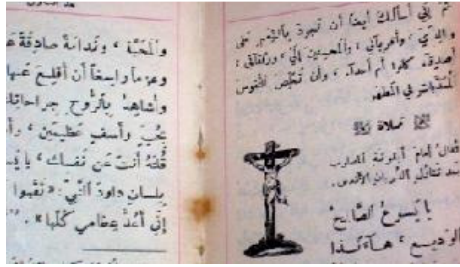 ثم إني أسألك أيضاً أن تجود بالنعم على
والديّ، وأقربائي، والمحسنين إليّ، ورفقائي،
أصدقاء كانوا أم أعداء، وأن تخلّص النفوس
في المطهر.
صلاة
تقال أمام أيقونة المصلوب
بعد تناول القربان الأقدس.
يا يسوع الصالح
الوديع، هاءنذا
والمحبّة، وندامة صادقة
وعزماً راسخاً أن أقلع عنها
وأشاهد بالروح جراحاتك
بحبّ وأسف عظيمين،
قاله أنت عن نفسك،
بلسان داود النبيّ: «ثقبوا
إني أعدّ عظامي كلّها».